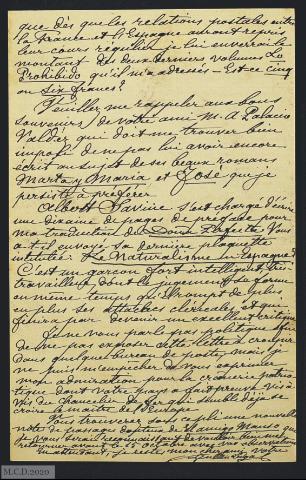 que dès que les relations postales entre
la France et l'Espagne auront repris
leur cours régulier je lui enverrai le
montant des deux derniers volumes Lo
Prohibido qu'il m'a adressés - Est-ce cinq
ou six francs?
Veuillez me rappeler aux bons
souvenirs de votre ami M. A Palacio
Valdés qui doit me trouver bien
impoli de ne pas lui avoir encore
écrit au sujet de ses beaux romans
Marta y Maria et José que je
persiste à préférer.
Albert Savine s'est chargé d'écrire
une dizaine de pages de préface pour
ma traduction de Doña Perfecta Vous
a-t-il envoyé sa dernière plaquette
intitulée Le Naturalisme en Espagne?
C'est un garçon fort intelligent très
travailleur dont le jugement se forme
en même temps qu'il rompt de plus
en plus ses attaches cléricales et qui
finira par devenir un excellent critique
Je ne vous parle pas politique afin
de ne pas exposer cette lettre à croupir
dans quelque bureau de poste, mais je
ne puis m'empêcher de vous exprimer
mon admiration pour la crânerie patrio
tique dont votre pays a fait preuve vis à
vis du Chancelier de fer qui semble déjà se
croire le maître de l'Europe
Vous trouverez sous ce pli une nouvelle
note de passages douteux de El amigo Manso que
je vous serais reconnaissant de vouloir bien me
retourner avant le 15 octobre avec vos observations
m'attendant, je reste mon cher ami votre
M.C.D.2020